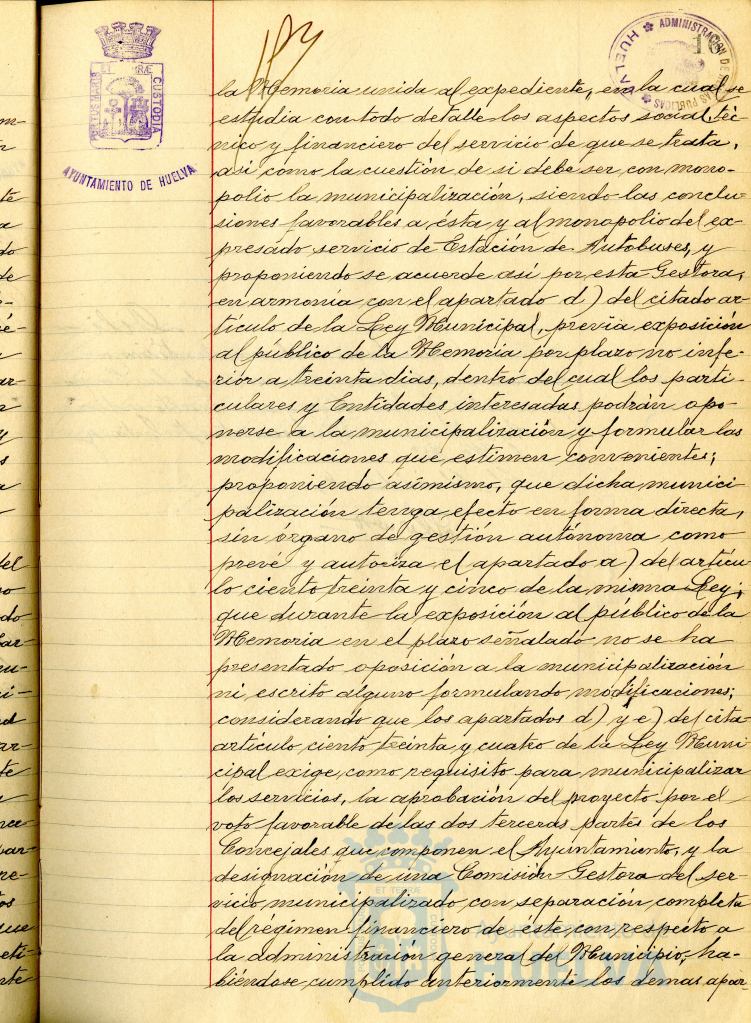 ADMINISTRACION DE
HUELVA
PORTUS MARIS ET TERRÆ CUSTODIA
AYUNTAMIENTO DE HUELVA
la Memoria unida al expediente, en la cual se
estudia con todo detalle los aspectos social, téc
nico y financiero del servicio de que se trata,
asi como la cuestión de si debe ser con mono-
polio la municipalización, siendo las conclu-
siones favorables a ésta y al monopolio del ex-
presado servicio de Estación de Autobuses, y
proponiendo se acuerde así por esta Gestora,
en armonía con el apartado d) del citado ar-
tículo de la Ley Municipal, previa exposición
al público de la Memoria por plazo no infe-
rior a treinta dias, dentro del cual los parti-
culares y Entidades interesadas podrán opo
nerse a la municipalización y formular las
modificaciones que estimen convenientes;
proponiendo asímismo, que dicha munici
palización tenga efecto en forma directa,
sin órgano de gestión autónoma como
prevé y autoriza el apartado a) del artícu-
lo ciento treinta y cinco de la misma Ley;
que durante la exposición al público de la
Memoria en el plazo señalado no se ha
presentado oposición a la municipalización
ni escrito alguno formulando modificaciones;
considerando que los apartados d) y e) del cita-
artículo ciento treinta y cuatro de la Ley Muni
cipal exige como requisito para municipalizar
los servicios, la aprobación del proyecto por el
voto favorable de las dos terceras partes de los
Concejales que componen el Ayuntamiento, y la
designación de una Comisión Gestora del ser-
vicio municipalizado con separación completa
del régimen financiero de éste con respecto a
la administración general del Municipio, ha-
biéndose cumplido anteriormente los demas apar
Ayuntamiento de
HUELVA